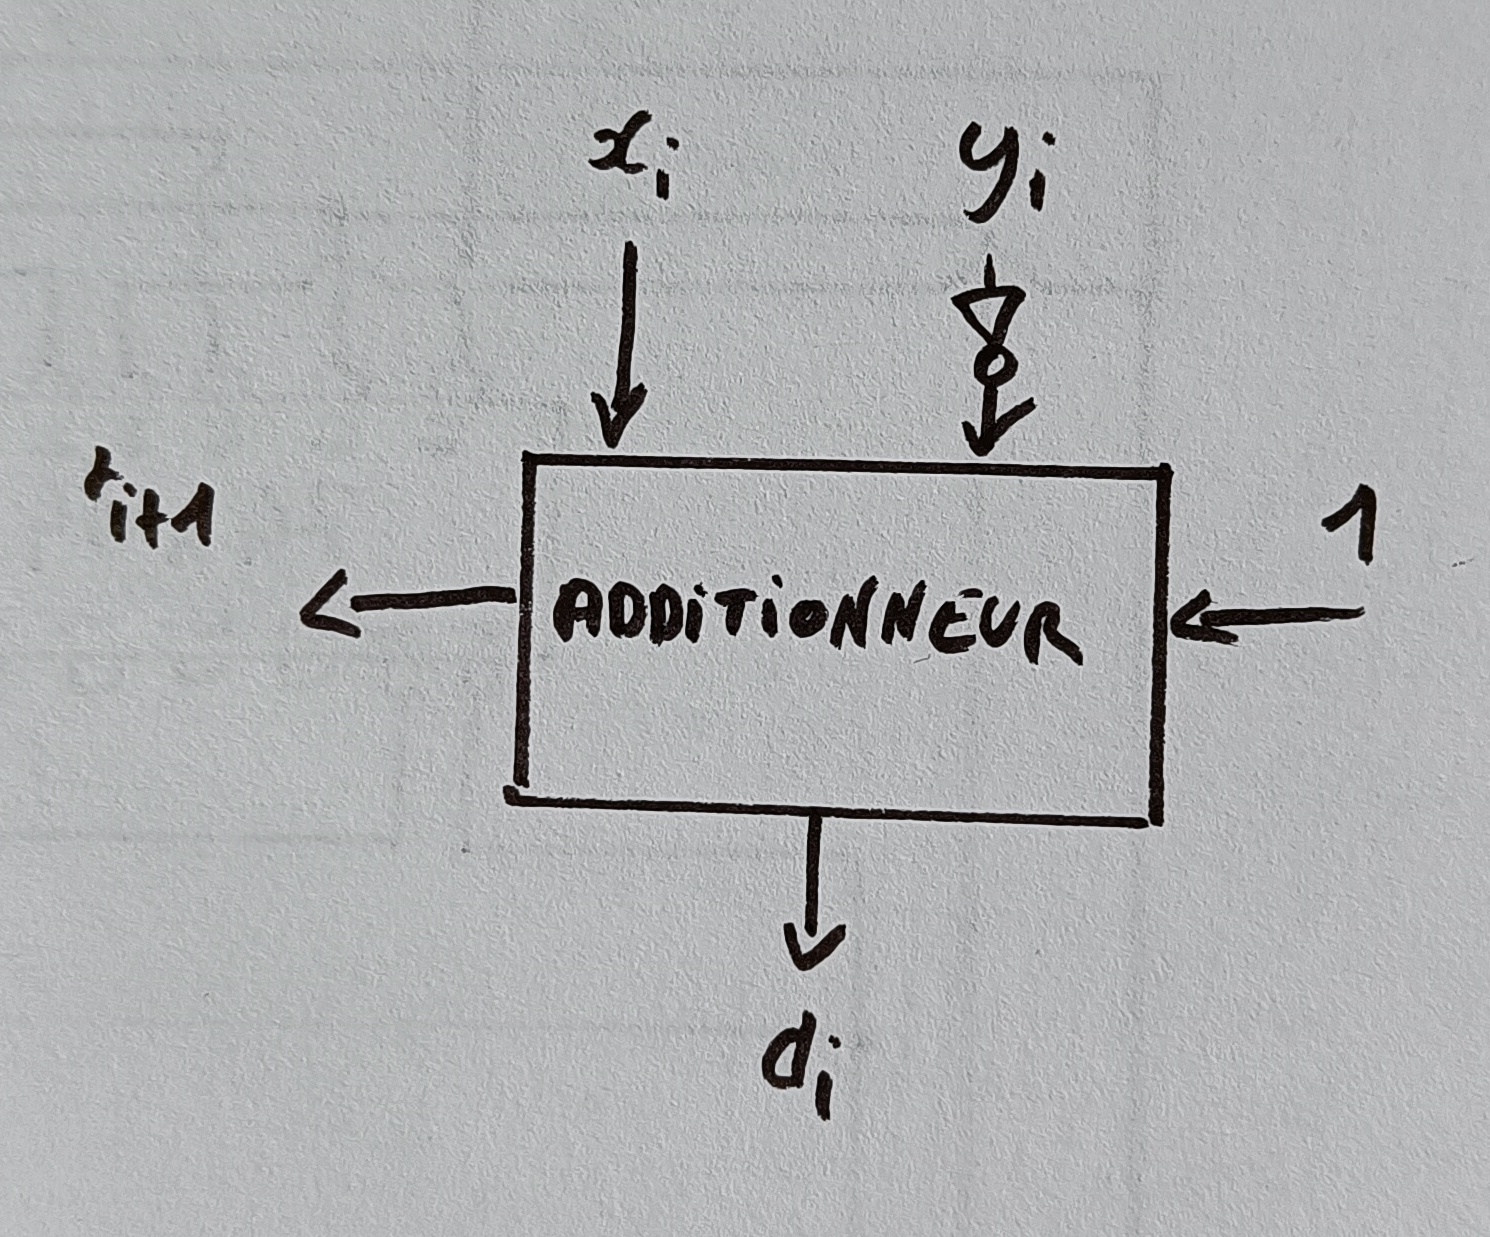 xi yi
ri+1 1
ADDiTiONNEUR
di